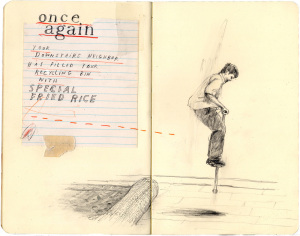 once
again
YOUR
DOWNSTAIRS NEIGHBOR
HAS FILLED YOUR
RECYCLING BIN
WITH
SPECIAL
FRIED RICE